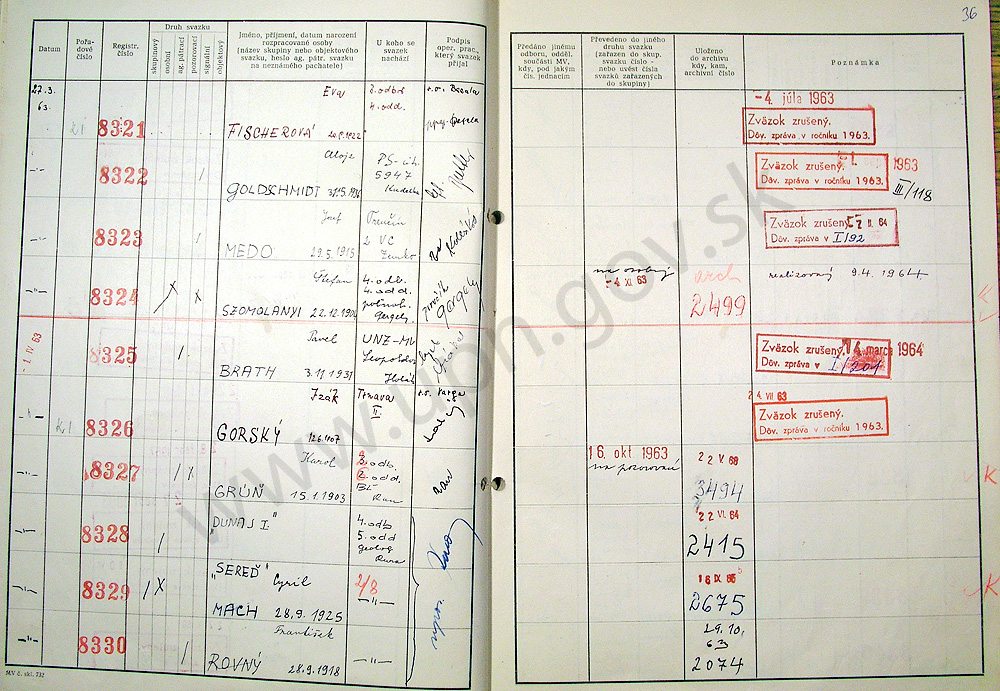 36
Datum
Pořadové číslo
Registr. číslo
Druh svazku
skupinový
osobní
ag. pátrací
pozorovací
signální
objektový
Jméno, příjmení, datum narození
rozpracované osoby
(název skupiny nebo objektového
svazku, heslo ag. pátr. svazku
na neznámého pachatele)
U koho se
svazek
nachází
Podpis
oper. prac.,
který svazek
přijal
Předáno jinému
odboru, odděl.
součásti MV,
kdy, pod jakým
čís. jednacím
Převedeno do jiného
druhu svazku
(zařazen do skup.
svazku číslo -
nebo uvést čísla
svazků zařazených
do skupiny)
Uloženo
do archivu
kdy, kam,
archivní číslo
Poznámka
27.3.
63.
8321
Eva
FISCHEROVÁ
2. odbor
4. odd.
- 4. júla 1963
Zväzok zrušený.
Dôv. zpráva v ročníku 1963.
8322
Alojz
GOLDSCHMIDT
PS-
5947
Kudelka
1963
Zväzok zrušený.
Dôv. zpráva v ročníku 1963.
III/118
8323
Jozef
MEDO 29.5.1915
Trenčín
2 VC
Zväzok zrušený
II. 64
Dôv. zpráva v I/92
8324
Štefan
SZOMOLANYI 22.12.1906
4. odb.
4. odd.
Gergely
Gergely
na osobný
- 4 XI 63
arch
2499
realizovaný 9.4.1964
1 IV 63
8325
Pavel
BRATH 3.11.1931
UNZ-MV
Leopoldov
Zväzok zrušený.
4. marca 1964
Dôv. zpráva v I/201
8326
Izák
GORSKÝ
Trnava
II.
r.o. Varga
4. VII 63
Zväzok zrušený.
Dôv. zpráva v ročníku 1963.
8327
Karol
GRÜN 15.1.1903
odb.
2. odd.
16. okt. 1963
na pozorovací
2 2 V. 68
3494
K
8328
"DUNAJ I."
4. odb
5. odd
2 2 VI. 64
2415
8329
"SEREĎ" Cyril
MACH 28.9.1925
2/8
—"—
1 6 IX 65
2675
K
8330
František
ROVNÝ 28.9.1918
—"—
29.10.
63
2074
MV č. skl. 732
www.upn.gov.sk